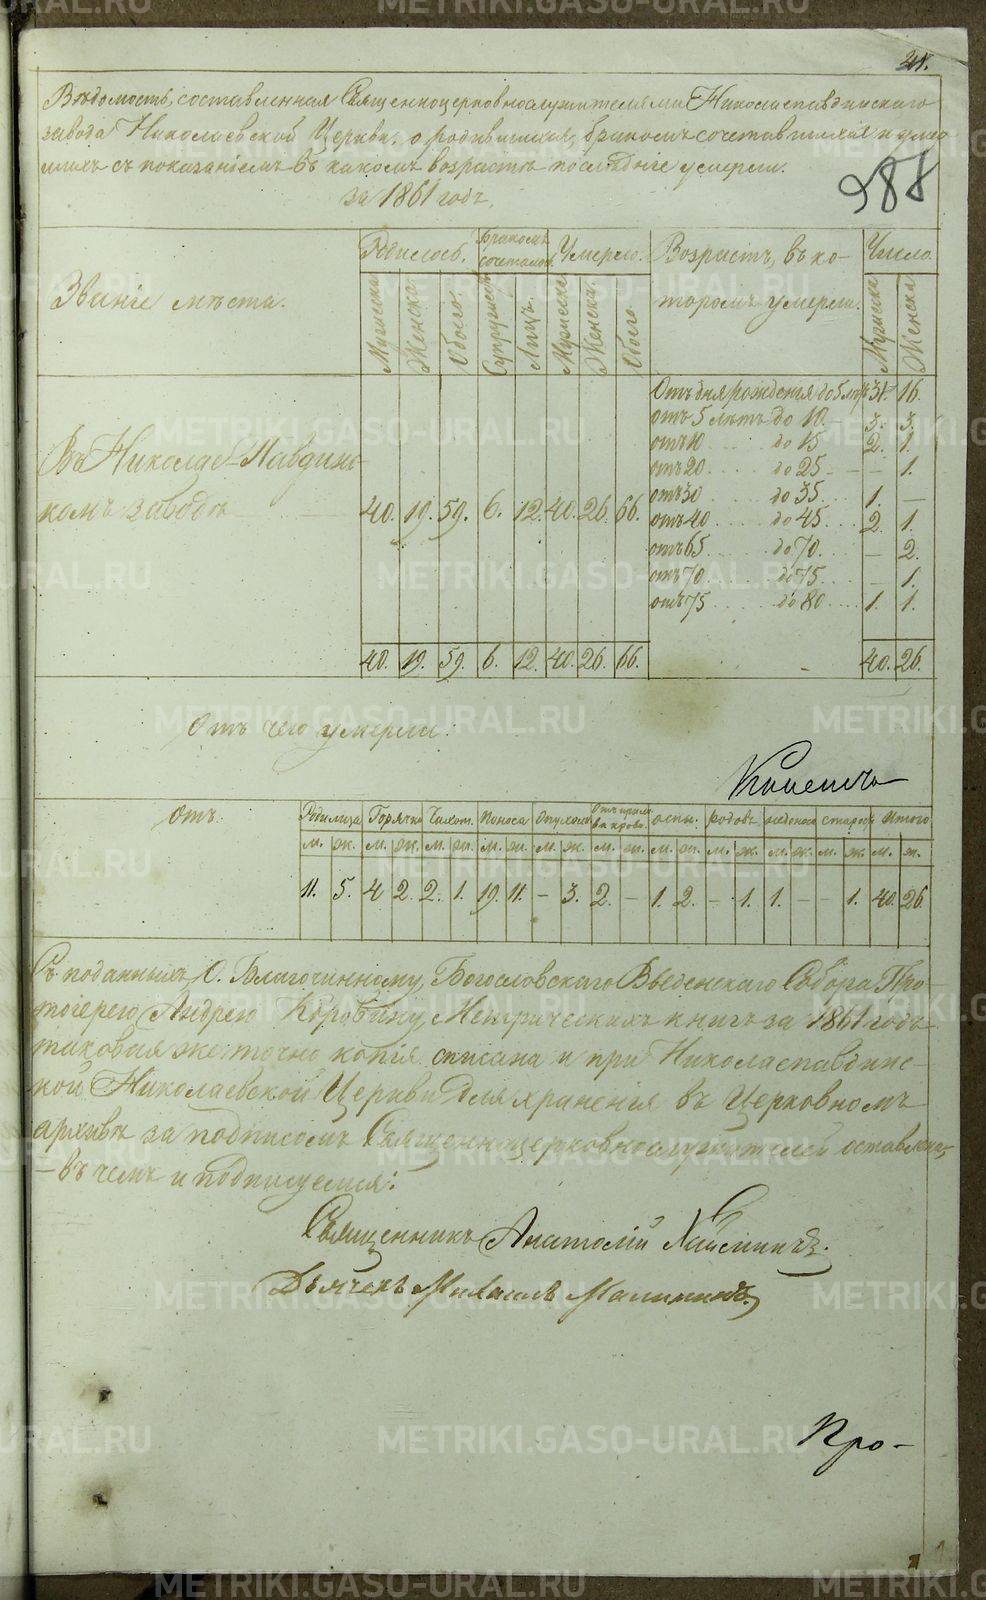 21.
Вѣдомость, составленная Священноцерковнослужителями Николаепавдинскаго
завода Николаевской Церкви, о родившихся, бракомъ сочетавшихся и умер
шихъ съ показаніемъ въ какомъ возрастѣ послѣдніе умерли.
за 1861 годъ.
288
Званіе мѣста. Родилось. Бракомъ сочеталось Умерло. Возрастъ, въ ко- Число.
торомъ умерли.
Мужска Женска. Обоего. Супружес Лицъ. Мужска Женска. Обоего Мужска Женска
Въ Николае-Павдинс
комъ заводѣ 40. 19. 59. 6. 12. 40. 26. 66.
Отъ дня рожденія до 5 лѣтъ 31. 16.
отъ 5 лѣтъ до 10. — 3. 3.
отъ 10 до 15 2. 1.
отъ 20 до 25 — — 1.
отъ 30 до 35 1. —
отъ 40 до 45 2. 1.
отъ 65 до 70. — 2.
отъ 70 до 75 — 1.
отъ 75 до 80 1. 1.
40. 19. 59. 6. 12. 40. 26. 66. 40. 26.
Отъ чего умерли:
Отъ Родимца Горячки Чахот. Поноса Опухоли оспы. родовъ старос Итого
м. ж. м. ж. м. ж. м. ж. м. ж. м. ж. м. ж. м. ж. м. ж. м. ж. м. ж.
11. 5. 4 2. 2. 1. 19. 11. — 3. 2. — 1. 2. — 1. 1. — — 1. 40. 26
Съ поданныхъ О. Благочинному, Богословскаго Введенскаго Собора Про-
тоіерею Андрею Коровину Метрическихъ книгъ за 1861 годъ
таковая же точно копія списана и при Николаепавдинс-
кой Николаевской Церкви для храненія въ Церковномъ
архивѣ за подписомъ Священноцерковнослужителей оставлена,
— въ чемъ и подписуемся:
Священникъ Анатолій
Дьячекъ Михаилъ Малининъ.
Про-
METRIKI.GASO-URAL.RU